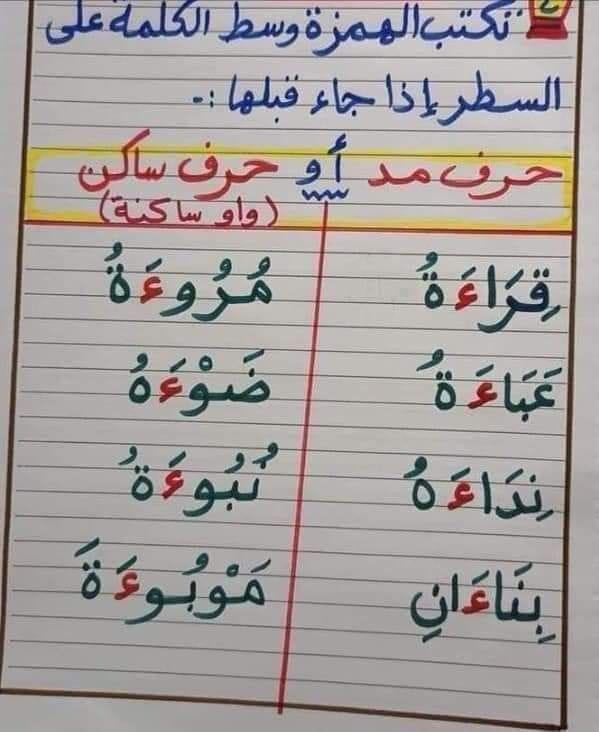 تكتب الهمزة وسط الكلمة على
السطر إذا جاء قبلها :-
حرف مد أو حرف ساكن
(واو ساكنة)
قِرَاءَةُ مُرُوءَةُ
عَبَاءَةُ ضَوْءَهُ
نِدَاءَهُ نُبُوءَةُ
بِنَاءَانِ مَوْبُوءَةَ